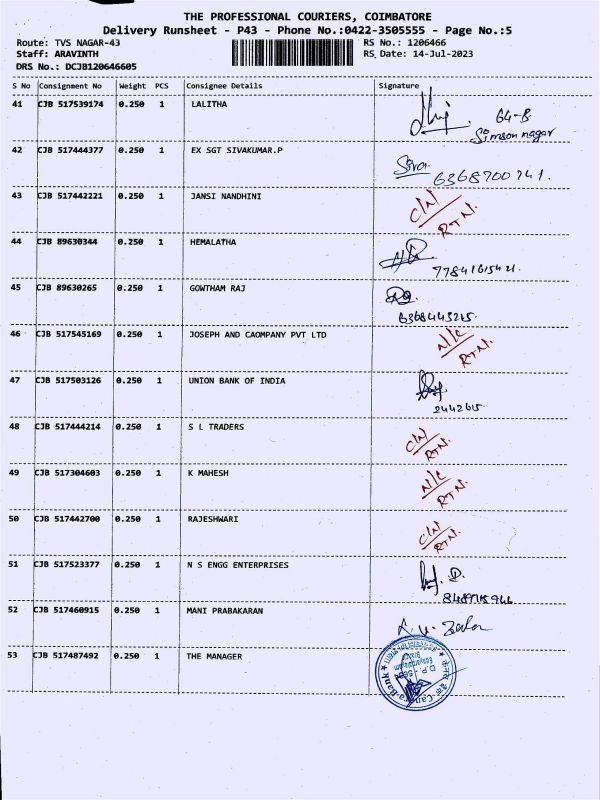 THE PROFESSIONAL COURIERS, COIMBATORE
Delivery Runsheet - P43 - Phone No.:0422-3505555 - Page No.:5
Route: TVS NAGAR-43 RS No.: 1206466
Staff: ARAVINTH RS Date: 14-Jul-2023
DRS No.: DCJB120646605
S No Consignment No Weight PCS Consignee Details Signature
41 CJB 517539174 0.250 1 LALITHA
64-B
Simson nagar
42 CJB 517444377 0.250 1 EX SGT SIVAKUMAR.P
Siva
6368700741.
43 CJB 517442221 0.250 1 JANSI NANDHINI
C/N
RTN.
44 CJB 89630344 0.250 1 HEMALATHA
45 CJB 89630265 0.250 1 GOWTHAM RAJ
46 CJB 517545169 0.250 1 JOSEPH AND CAOMPANY PVT LTD
N/C
RTN.
47 CJB 517503126 0.250 1 UNION BANK OF INDIA
2442615
48 CJB 517444214 0.250 1 S L TRADERS
C/N
RTN.
49 CJB 517304603 0.250 1 K MAHESH
N/C
RTN.
50 CJB 517442700 0.250 1 RAJESHWARI
C/N
RTN.
51 CJB 517523377 0.250 1 N S ENGG ENTERPRISES
52 CJB 517460915 0.250 1 MANI PRABAKARAN
53 CJB 517487492 0.250 1 THE MANAGER
Canara Bank